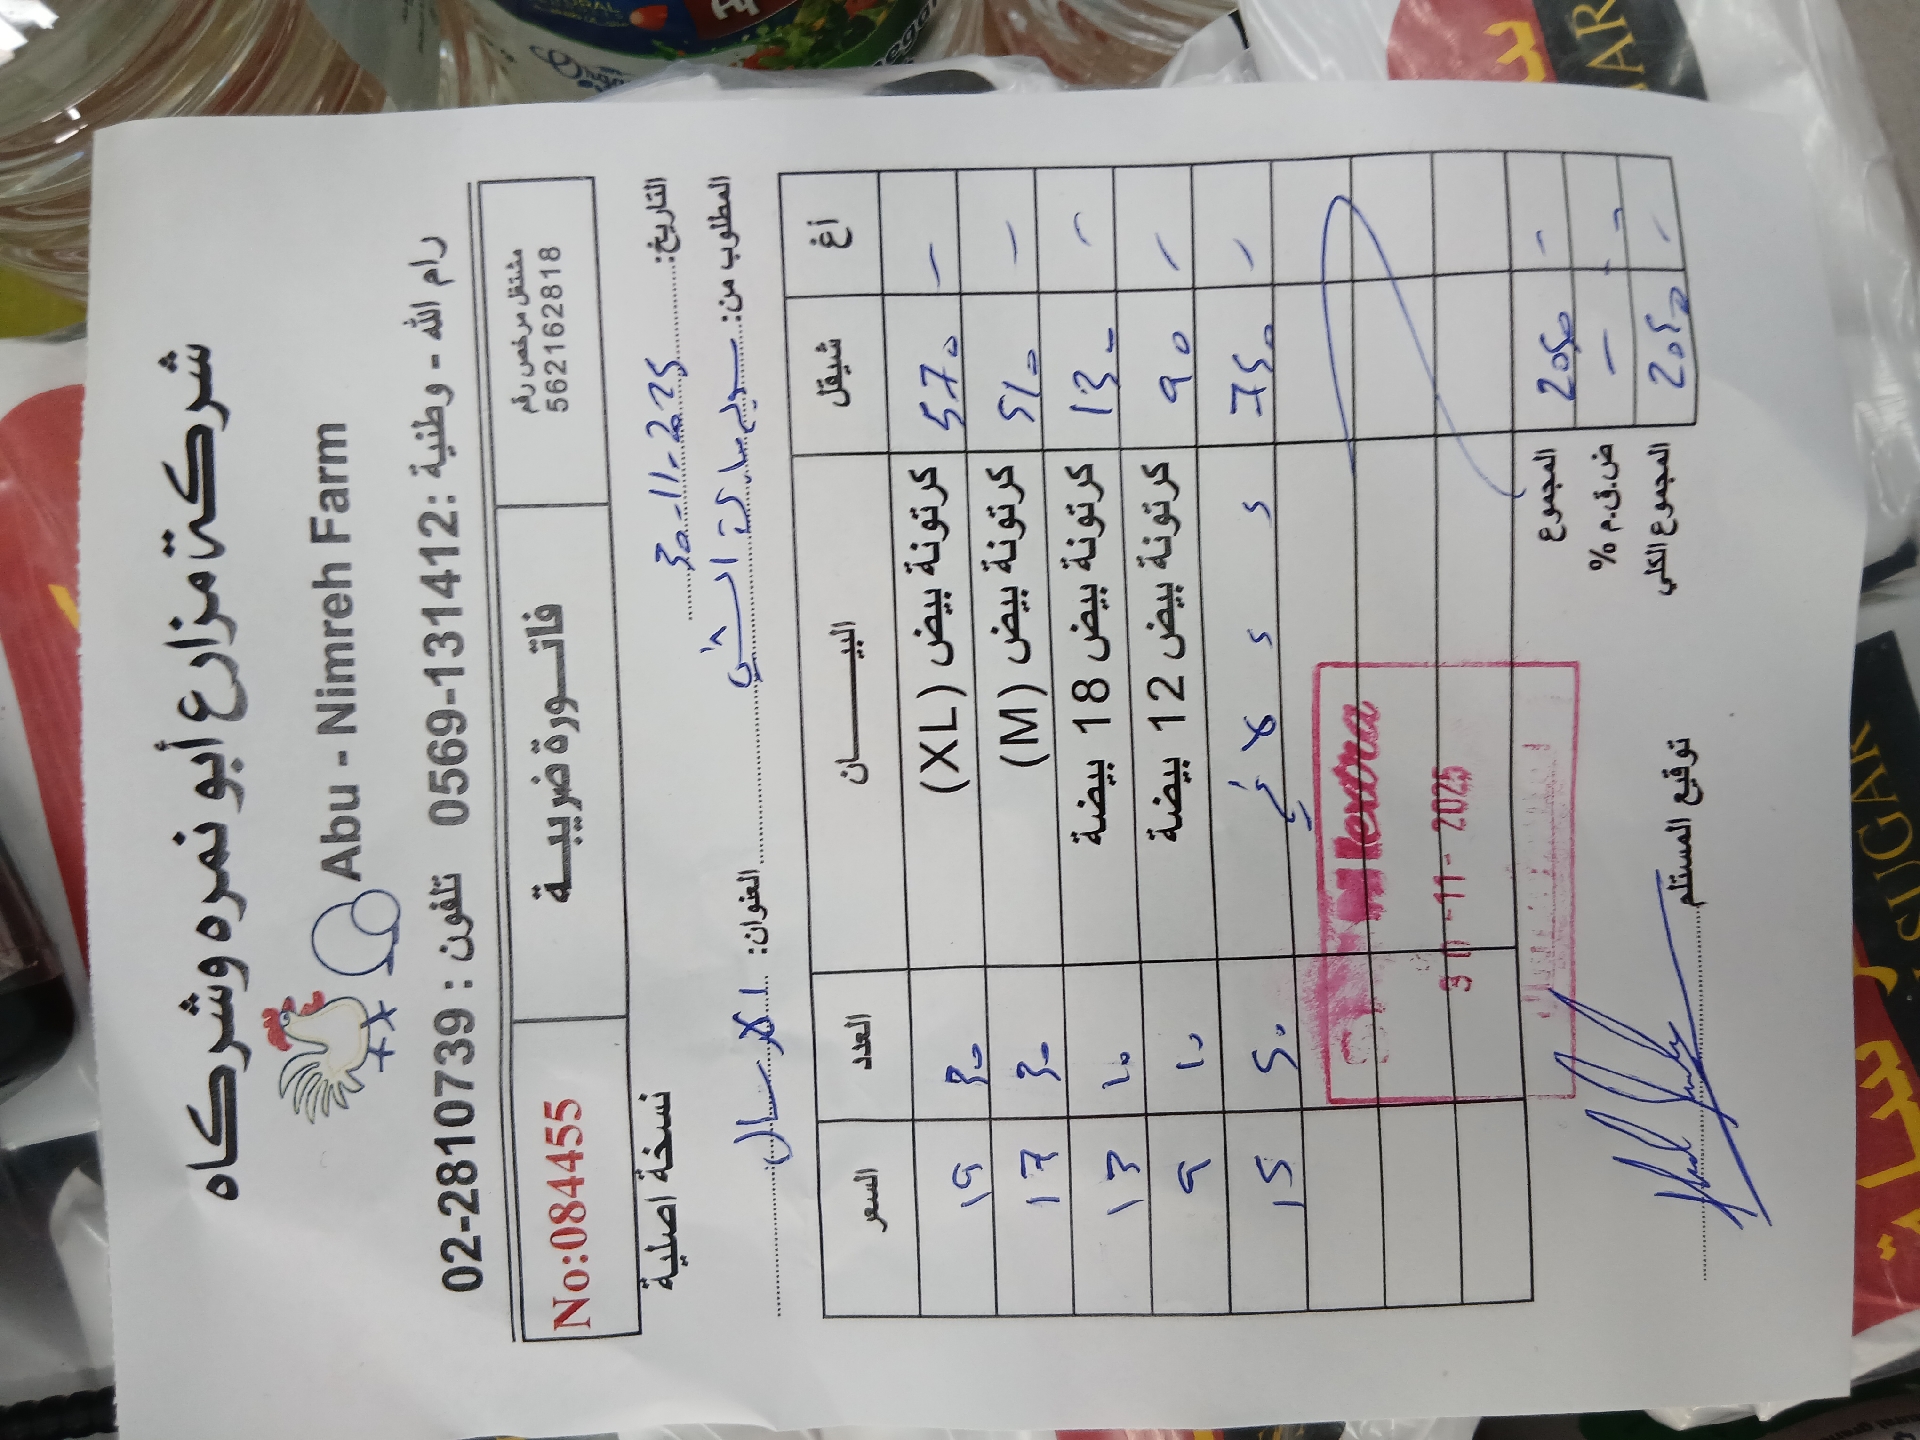 شركة مزارع أبو نمره وشركاه
Abu - Nimreh Farm
رام الله - وطنية: 0569-131412 تلفون : 02-2810739
مشتغل مرخص رقم
562162818
فاتــورة ضريبيــة
No:084455
التاريخ: 30-11-2025
نسخة اصلية
المطلوب من:
العنوان:
أغ شيقل البيــــــان العدد السعر
- 570 كرتونة بيض (XL) 30 19
- 510 كرتونة بيض (M) 30 17
- 130 كرتونة بيض 18 بيضة 10 13
- 90 كرتونة بيض 12 بيضة 10 9
- 750 50 15
extra
30-11-2025
المجموع 2050 -
ض.ق.م % - -
المجموع الكلي 2050 -
توقيع المستلم
SUGAR
سكر